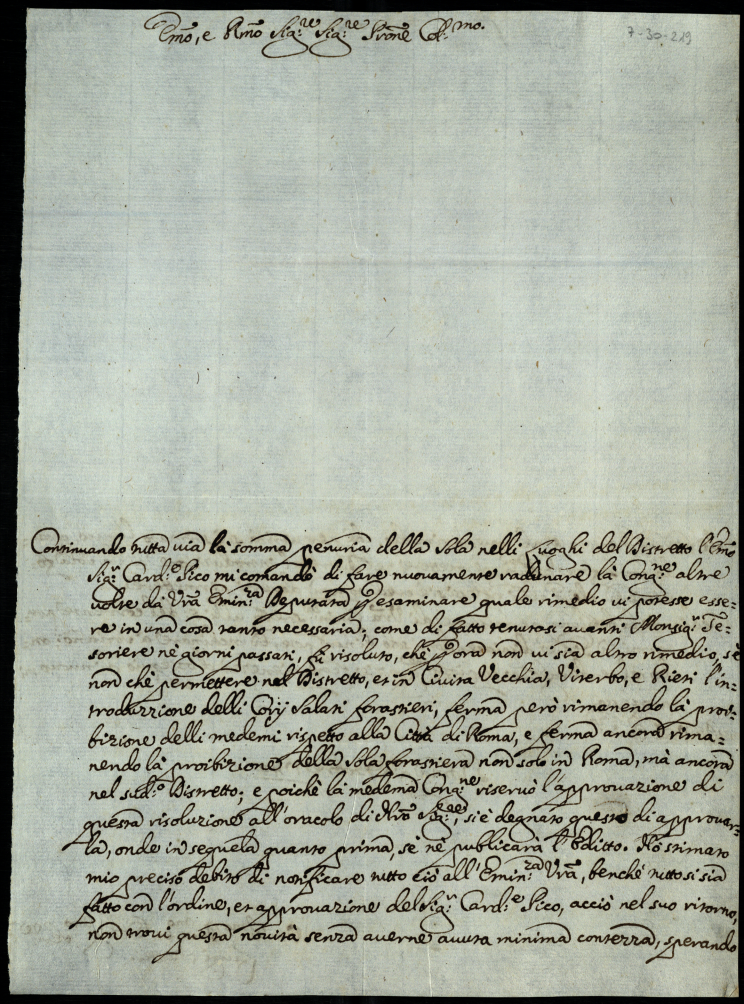 Emo, e Rmo Sig.re Sig.re Prone Col.mo
7-30-219
Continuando tutta via la somma penuria della Sola nelli Luoghi del Distretto l'Emo
Sig.r Card.e Pico mi comandò di fare nuovamente radunare la Cong.ne altre
volte da Vra Emin.za Deputata p esaminare quale rimedio vi potesse esse=
re in una cosa tanto necessaria; come di fatto tenutasi avanti Monsig.r Te=
soriere nè giorni passati, fù risoluto, chè p ora non vi sia altro rimedio, sè
non chè permettere nel Distretto, et in Civita Vecchia, Viterbo, e Rieti l'in=
troduzzione delli Corij Salati forastieri, ferma però rimanendo la proi=
bizione delli medemi rispetto alla Città di Roma, e ferma ancora rima=
nendo la proibizione della Sola forastiera non solo in Roma, mà ancora
nel sud.o Distretto; e poichè la medema Cong.ne riservò l'approvazione di
questa risoluzione all'oracolo di Nro Sig.re, si è degnato questo di approvar=
la, onde in seguela quanto prima, sè nè publicarà l'Editto. Hò stimato
mio preciso debito di notificare tutto ciò all'Emin.za Vra, benchè tutto si sia
fatto con l'ordine, et approvazione del Sig.r Card.e Pico, acciò nel suo ritorno,
non trovi questa novità senza averne avuta minima contezza, sperando